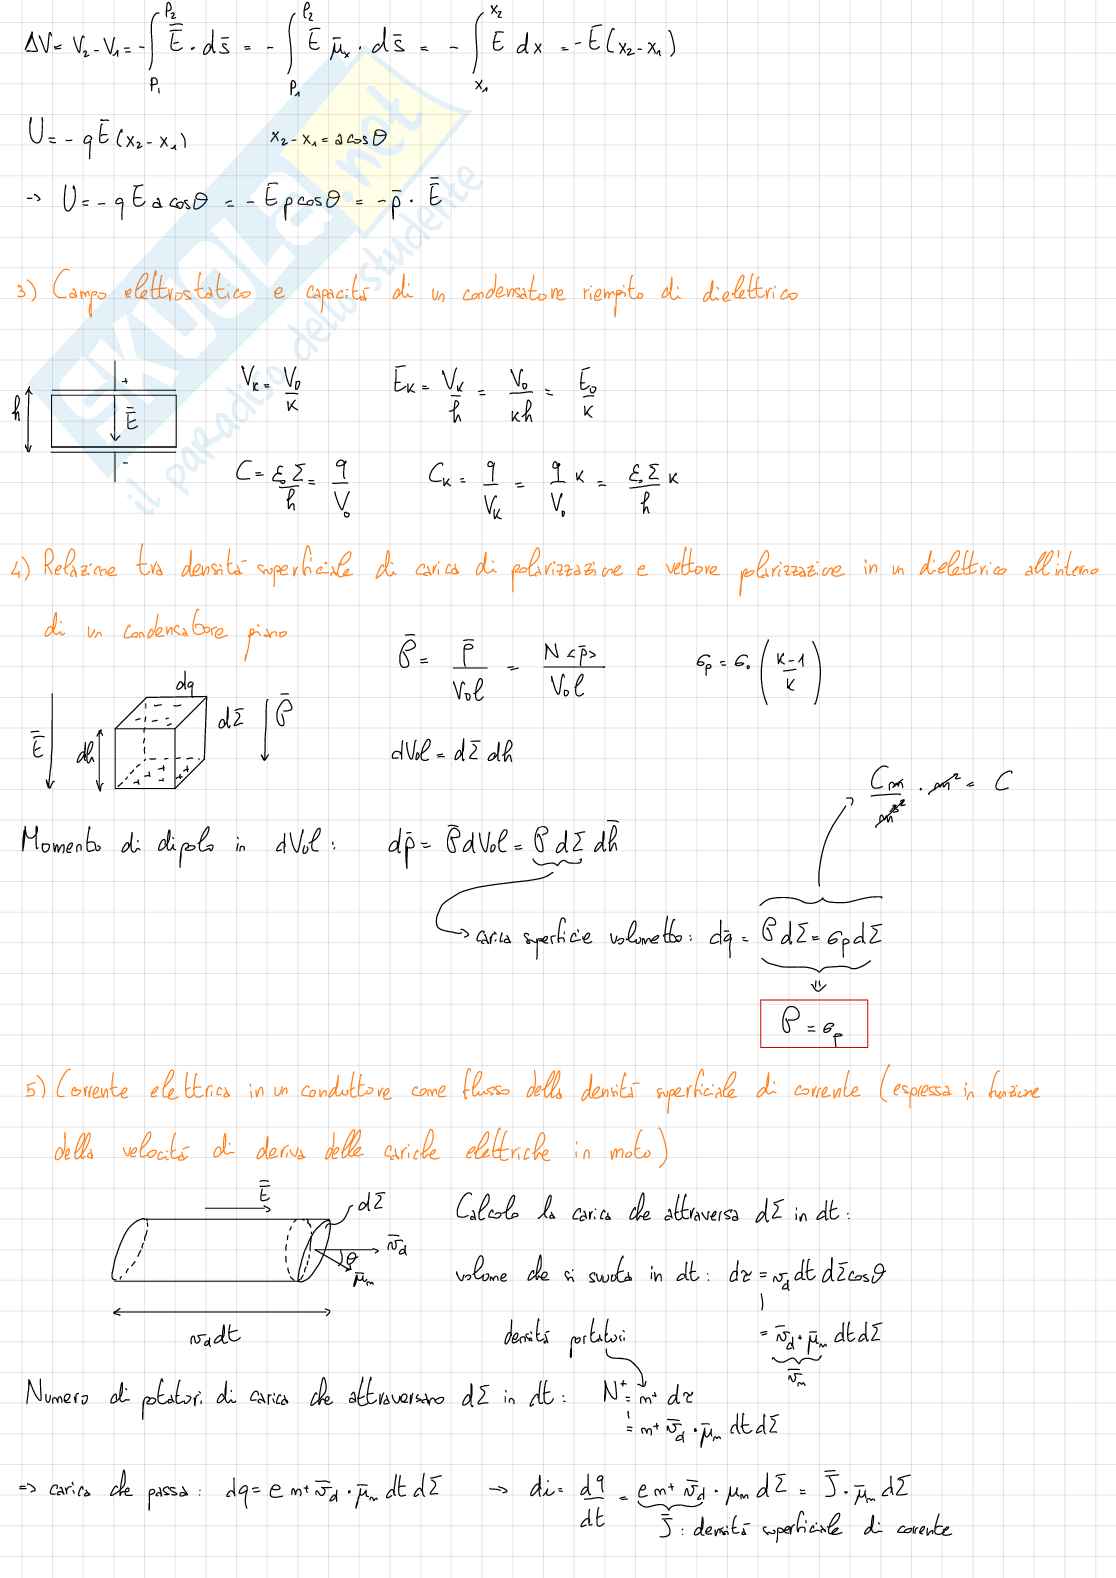 ΔV = V₂ - V₁ = -∫_{P₁}^{P₂} Ē · ds̄ = -∫_{P₁}^{P₂} Ē μ̄ₓ · ds̄ = -∫_{x₁}^{x₂} E dx = -E(x₂-x₁)
U = -qE(x₂-x₁)    x₂-x₁ = a cosθ
→ U = -qE a cosθ = -E p cosθ = -p̄ · Ē
3) Campo elettrostatico e capacità di un condensatore riempito di dielettrico
h + Ē -
V_K = V₀/K    E_K = V_K/h = V₀/Kh = E₀/K
C = ε₀Σ/h = q/V₀    C_K = q/V_K = q/V₀ K = ε₀Σ/h K
4) Relazione tra densità superficiale di carica di polarizzazione e vettore polarizzazione in un dielettrico all'interno
di un condensatore piano
P̄ = p̄/Vol = N<p̄>/Vol    σp = σ₀ (K-1/K)
Ē dh dq dΣ P̄
dVol = dΣ dh
Cm/m³ · m² = C
Momento di dipolo in dVol: dp̄ = P̄dVol = P dΣ dh̄
→ carica superficie volumetto: dq = P dΣ = σp dΣ
⇓
P = σp
5) Corrente elettrica in un conduttore come flusso della densità superficiale di corrente (espressa in funzione
della velocità di deriva delle cariche elettriche in moto)
Ē dΣ v̄d θ μ̄m
vd dt
Calcolo la carica che attraversa dΣ in dt:
volume che si svuota in dt: dτ = vd dt dΣ cosθ
= v̄d · μ̄m dt dΣ
v̄m
densità portatori
Numero di potatori di carica che attraversano dΣ in dt: N⁺ = m⁺ dτ
= m⁺ v̄d · μ̄m dt dΣ
⇒ carica che passa: dq = e m⁺ v̄d · μ̄m dt dΣ → di = dq/dt = e m⁺ v̄d · μm dΣ = J̄ · μ̄m dΣ
J̄: densità superficiale di corrente
SKUOLA.net
il paradiso dello studente